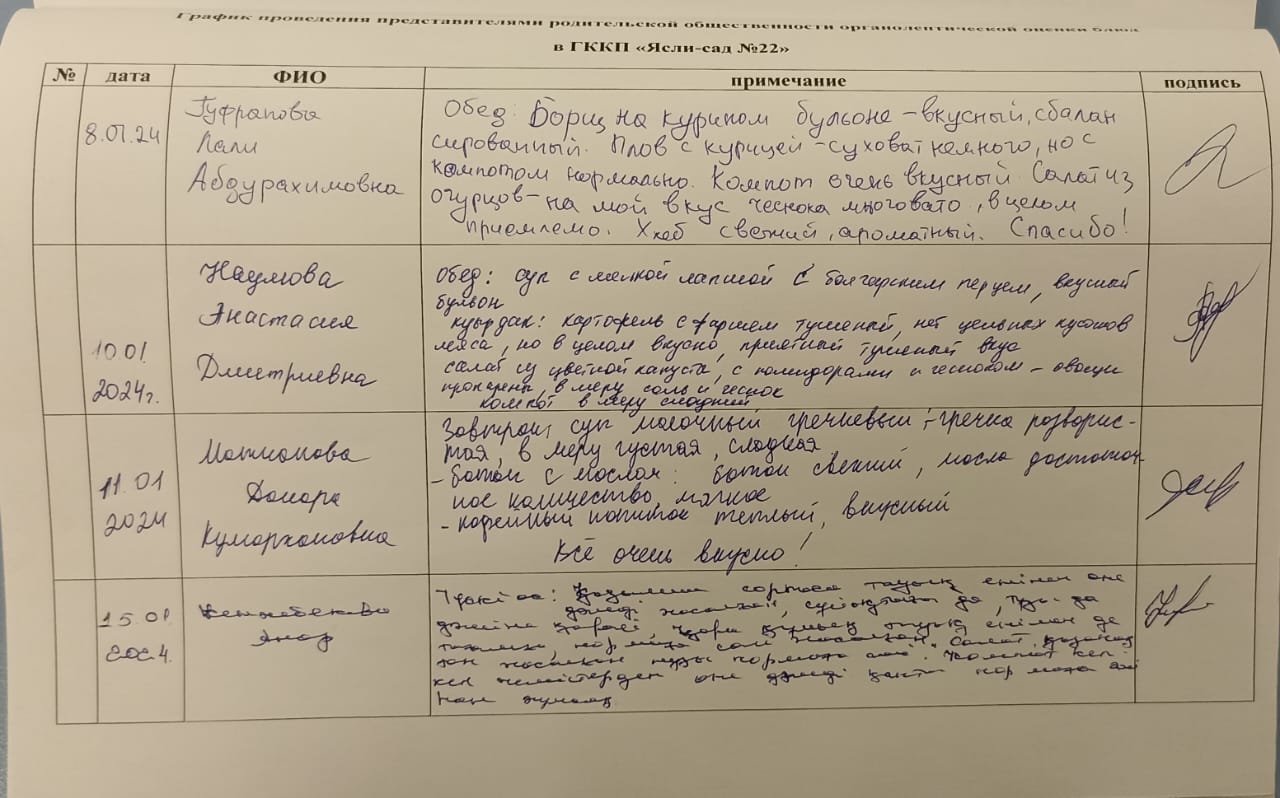 График проведения представителями родительской общественности органолептической оценки блюд
в ГККП «Ясли-сад №22»
№ дата ФИО примечание подпись
8.01.24
Гуфранова
Лали
Абдурахимовна
Обед: Борщ на курином бульоне - вкусный, сбалан
сированный. Плов с курицей - суховат немного, но с
компотом нормально. Компот очень вкусный. Салат из
огурцов - на мой вкус чеснока многовато, в целом
приемлемо. Хлеб свежий, ароматный. Спасибо!
10.01.
2024г.
Наумова
Анастасия
Дмитриевна
Обед: суп с мелкой лапшой с болгарским перцем, вкусный
бульон
куырдак: картофель с фаршем тушеный, нет цельных кусков
мяса, но в целом вкусно, приятный тушеный вкус
салат из цветной капусты, с помидорами и чесноком - овощи
в меру соль и чеснок
компот в меру сладкий
11.01
2024
Динара
Кумархановна
Завтрак, суп молочный гречневый - гречка разварис-
тая, в меру густая, сладкая
- батон с маслом: батон свежий, масла достаточ-
ное количество, мягкое
- кофейный напиток теплый, вкусный
Всё очень вкусно!
15.01.
2024.
Түскі ас: сорпасы тауық етінен өте
дәмді жасалған, сұйықтығы да, тұзы да
етінен де
Салат
жасалған тұзы нормада Компот кеп-
кен жемістерден өте дәмді қанты нормада
нан